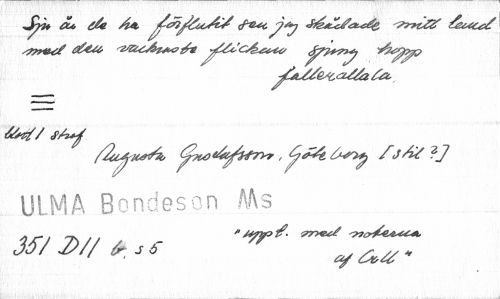 Sju år de ha förflutit sen jag skådade mitt land
med den vackraste flickan sjung hopp
fallerallala.
blott 1 strof
Augusta Gustafsson, Göteborg [stil?]
ULMA Bondeson Ms
351 D11 b. s 5
"uppt. med noterna
af CcU"